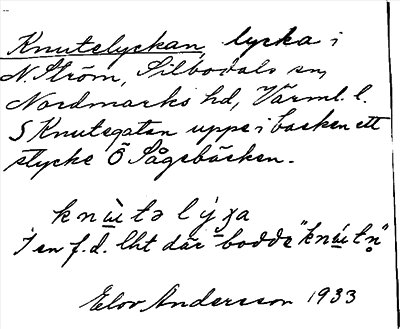 Knutelyckan, lycka i
N. Ström, Silbodals sn,
Nordmarks hd, Värml. l.
S Knutegatan uppe i backen ett
stycke Ö Sågebäcken.
knùtə lýχa
I en f.d. lht där bodde "knùtn̥"
Elov Andersson 1933